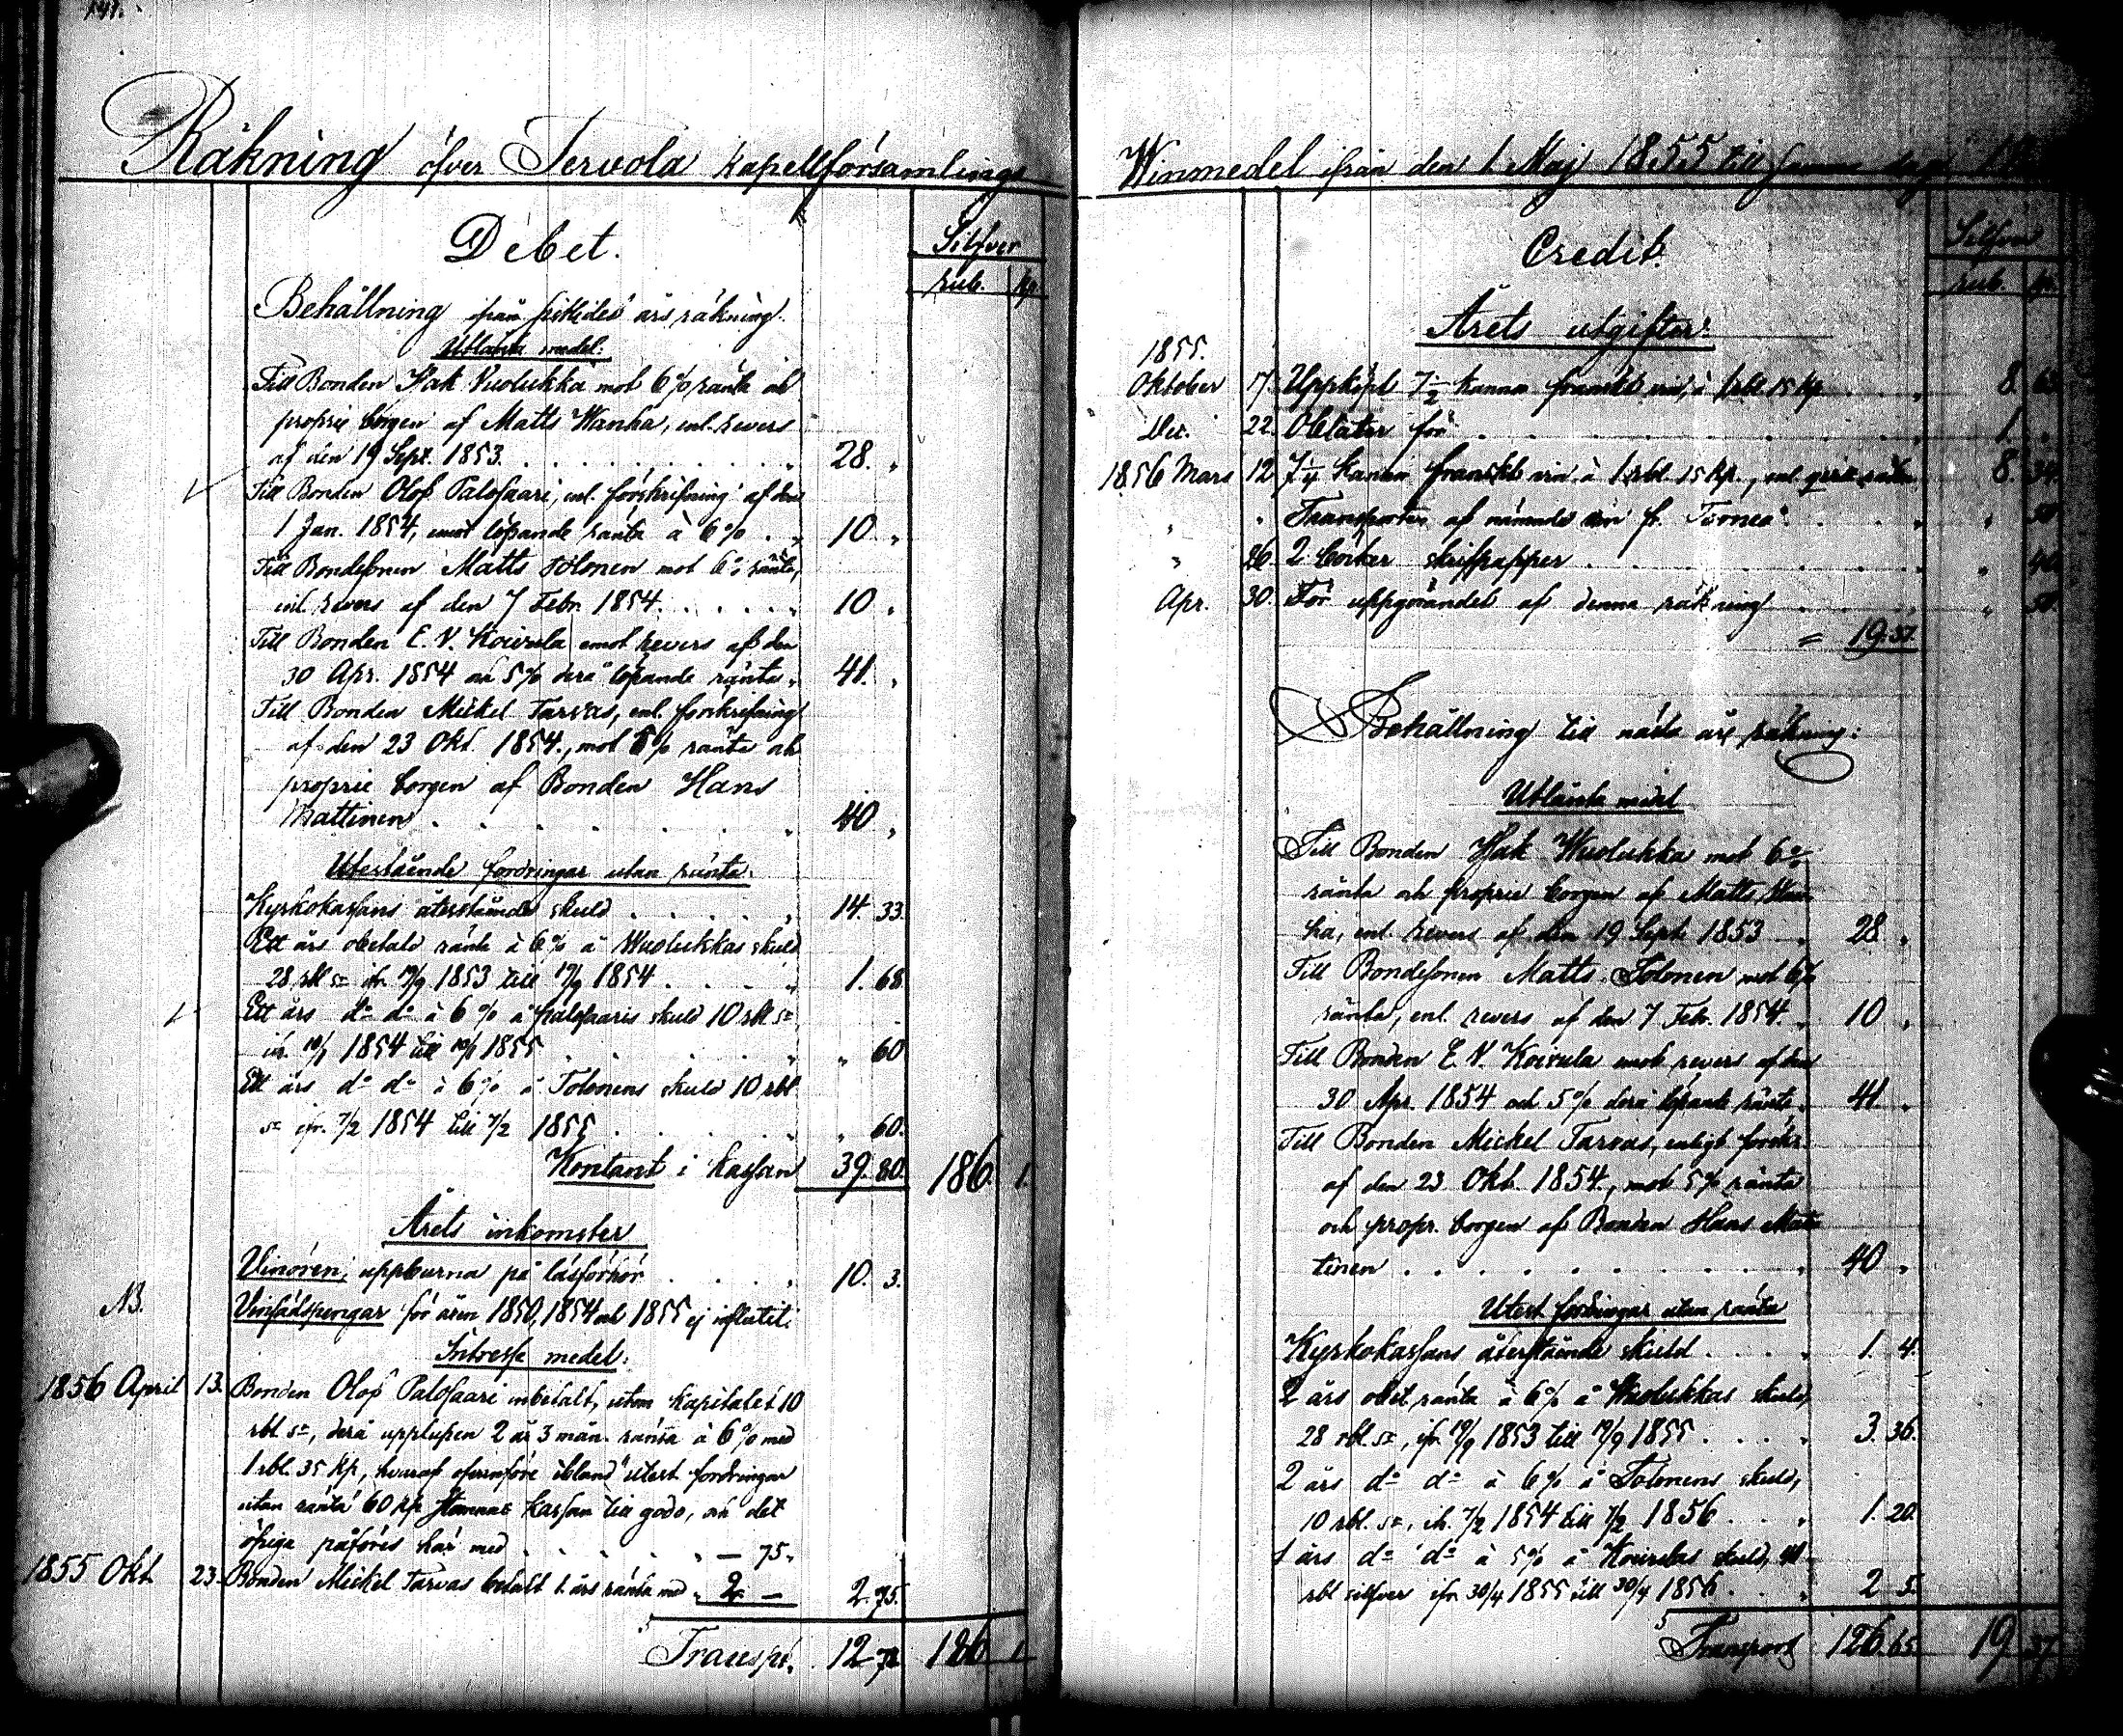 Räkning öfver Tervola kapellförsamlings
Debet.
Silfver
rub. kp.
Behållning från sistledes års räkning.
Utlånta medel:
Till Bonden Isak Vuolukka mot 6% ränta och
proprie borgen af Matts Wanha, enl. revers
af den 19 Sept. 1853. 28. "
Till Bonden Olof Palosaari, enl. förskrifning af den
1 Jan. 1854, emot löpande ränta à 6% . 10. "
Till Bondesonen Matts Tolonen mot 6% ränta,
enl. revers af den 7 Febr. 1854. 10. "
Till Bonden E. V. Koivula emot revers af den
30 Apr. 1854 och 5% derå löpande ränta 41. "
Till Bonden Mickel Tarvas, enl. förskrifning
af den 23 Okt. 1854, mot 5% ränta och
proprie borgen af Bonden Hans
Mattinen 40 "
Utestående fordringar utan ränta:
Kyrkokassans återstående skuld 14. 33.
Ett års obetald ränta à 6% å Wuolukkas skuld
28 rbl sr ifr. 19/9 1853 till 19/9 1854 1. 68
Ett års do do à 6% å Palosaaris skuld 10 rbl sr
ifr. 1854 till 1855 " 60
Ett års do do à 6% å Tolonens skuld 10 rbl
sr ifr. 7/2 1854 till 7/2 1855 " 60.
Kontant i kassan 39. 80. 186. 1.
Årets inkomster
Vinören, uppburna på läsförhör 10. 3.
NB. Vinsädspengar för åren 1850, 1854 och 1855 ej influtit.
Intresse medel:
1856 April 13. Bonden Olof Palosaari inbetalt, utom kapitalet 10
rbl sr, derå upplupen 2 år 3 mån. ränta à 6% med
1 rbl. 35 kp, hvaraf ofvanföre ibland utest. fordringar
utan ränta 60 kp. kassan till godo, och det
öfriga påföres här med — 75.
1855 Okt 23. Bonden Mickel Tarvas betalt 1 års ränta med 2 — 2. 75.
Transpt. 12 78 186 1.
Winmedel ifrån den 1 Maj 1855 till samma dag
Credit.
Silfver
rub. kp.
Årets utgifter:
1855.
Oktober 17. Uppköpt 7 1/2 kannor franskt vin, à 1 rbl. 15 kp. 8. 63
Dec. 22. Oblater för 1. "
1856 Mars 12 7 1/4 kannor franskt vin à 1 rbl. 15 kp., enl. 8. 34.
" " Transporten af nämnde vin fr. Torneå " 50
" 26. 2 böcker skrifpapper " 40
Apr. 30. För uppgörandet af denna räkning " 50.
= 19.37.
Behållning till nästa års räkning:
Utlånta medel
Till Bonden Isak Wuolukka mot 6%
ränta och proprie borgen af Matts Wan-
ha, enl. revers af den 19 Sept. 1853 28 "
Till Bondesonen Matts Tolonen mot 6%
ränta, enl. revers af den 7 Feb. 1854. 10 "
Till Bonden E. V. Koivula emot revers af den
30 Apr. 1854 och 5% derå löpande ränta 41. "
Till Bonden Mickel Tarvas, enligt förskr.
af den 23 Okt. 1854, mot 5% ränta
och propr. borgen af Bonden Hans Mat-
tinen 40 "
Utest. fordringar utan ränta
Kyrkokassans återstående skuld 1. 4.
2 års obet. ränta à 6% å Wuolukkas skuld,
28 rbl. sr, ifr. 19/9 1853 till 19/9 1855 3. 36.
2 års do do à 6% å Tolonens skuld,
10 rbl. sr, ifr. 7/2 1854 till 7/2 1856 1. 20.
1 års do do à 5% å Koivulas skuld, 41
rbl silfver ifr. 30/4 1855 till 30/4 1856 2 5
Transport 126.65 19 37